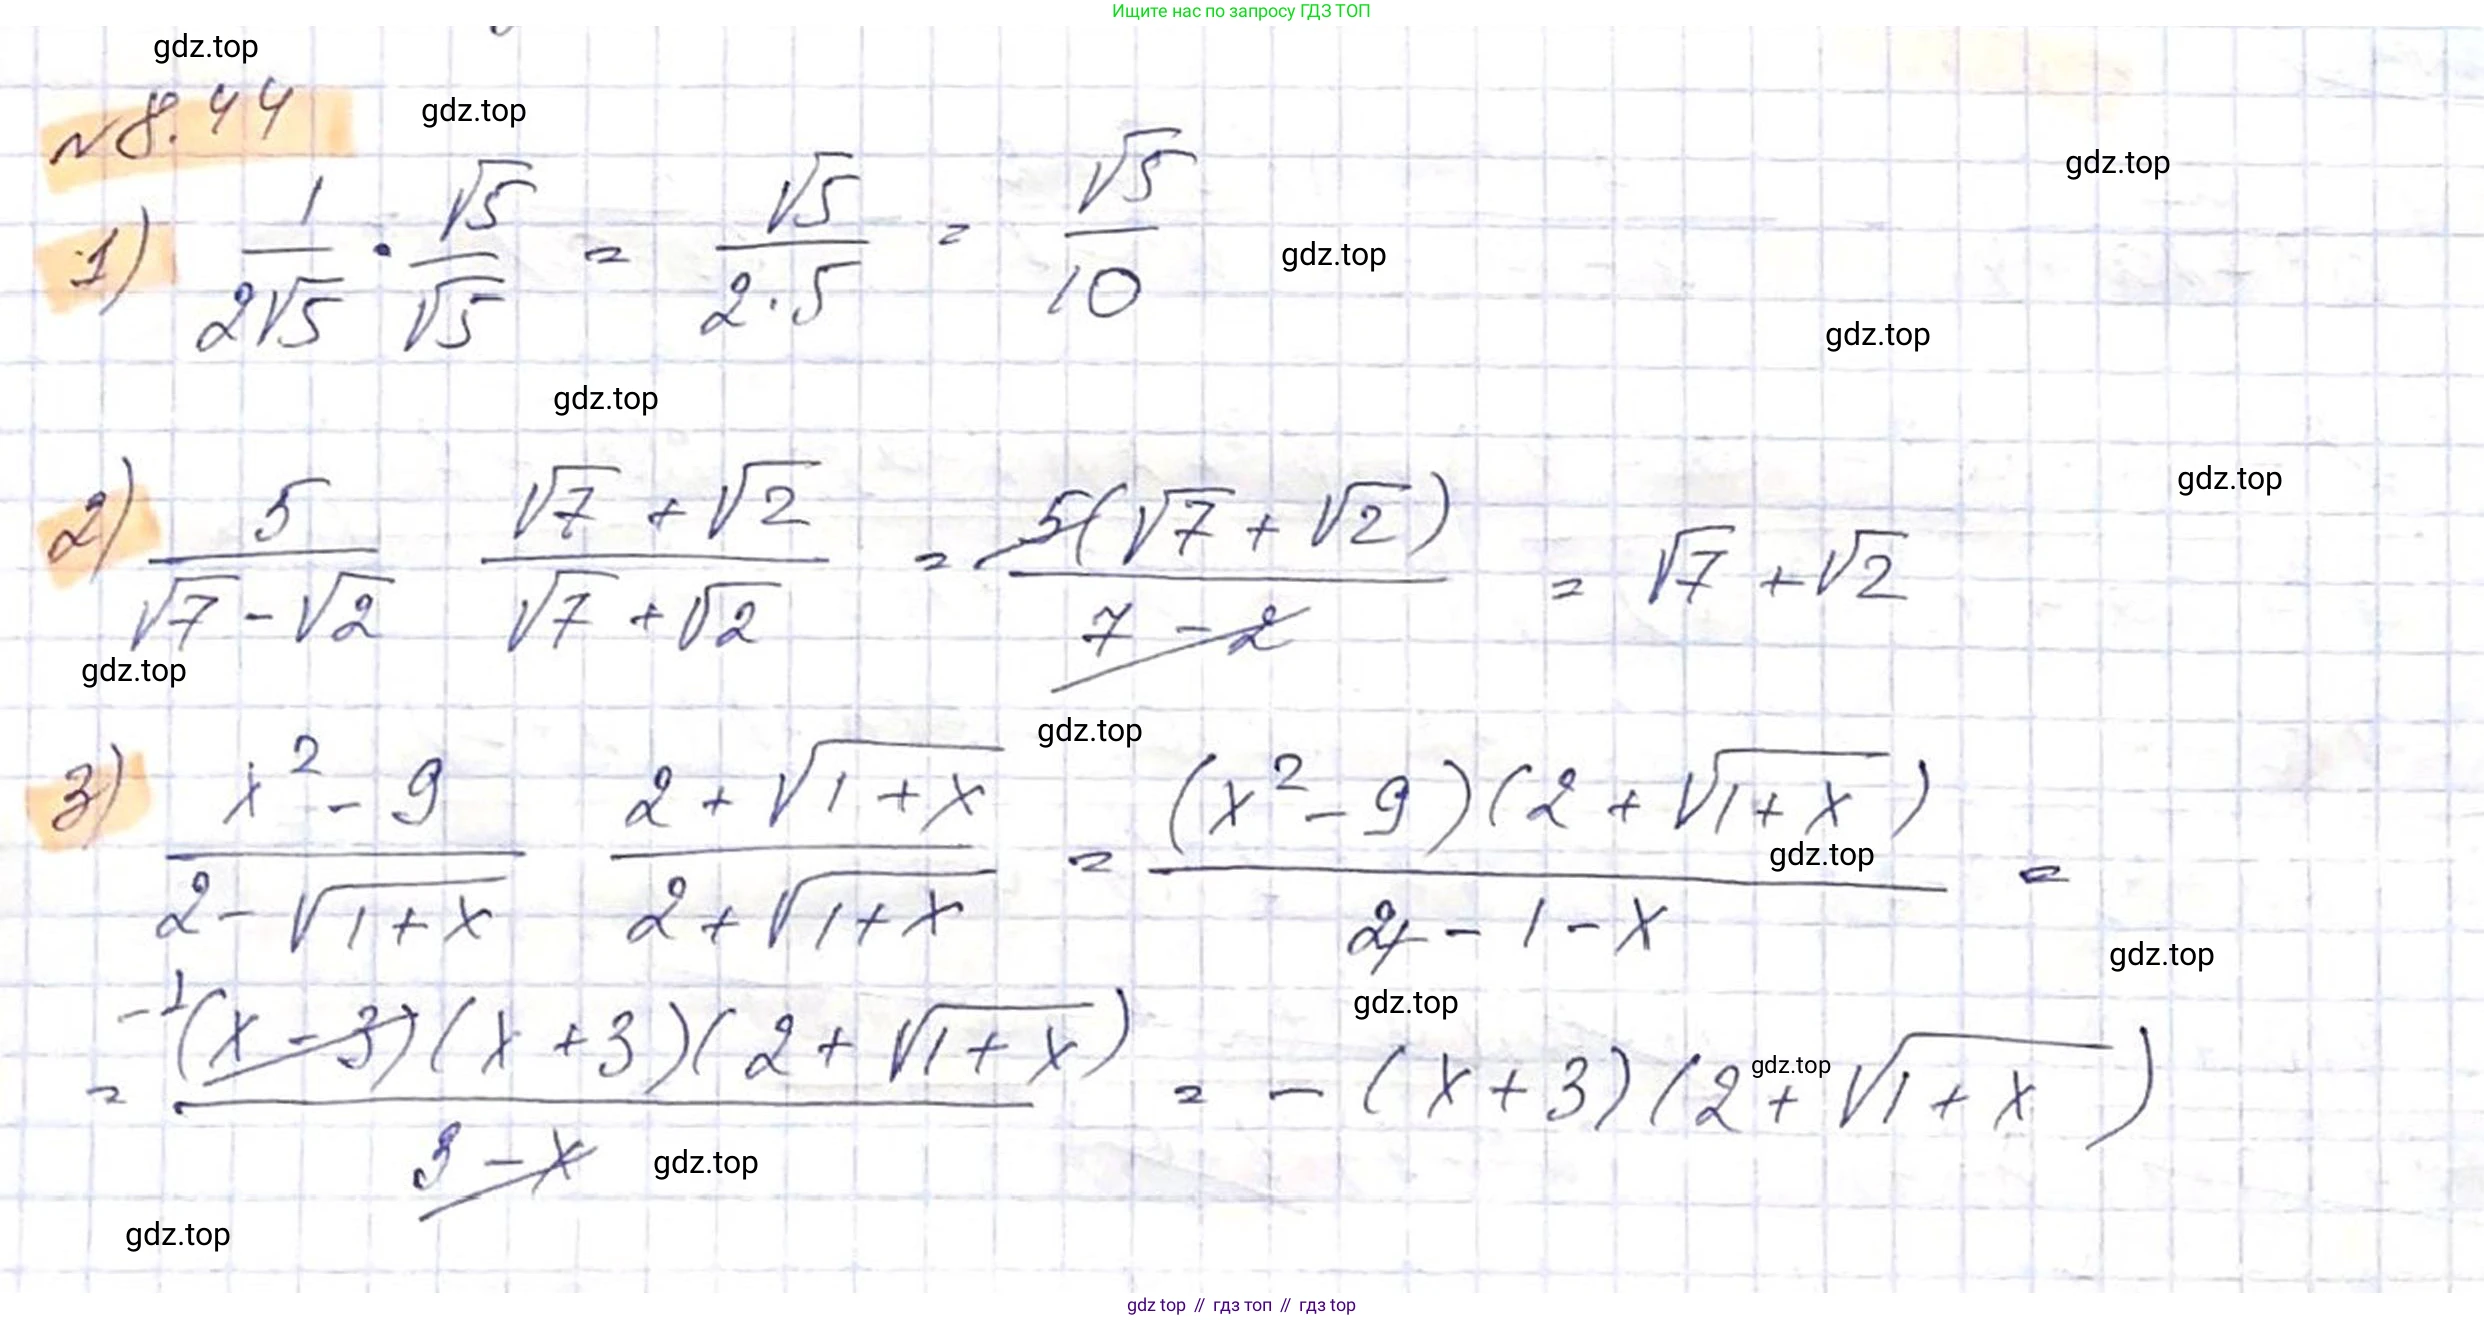 Ищите нас по запросу ГДЗ ТОП
gdz.top
№8.44
gdz.top
gdz.top
1) 1/(2√5) · √5/√5 = √5/(2·5) = √5/10
gdz.top
gdz.top
gdz.top
gdz.top
2) 5/(√7 - √2) (√7 + √2)/(√7 + √2) = 5(√7 + √2)/(7 - 2) = √7 + √2
gdz.top
gdz.top
3) (x² - 9)/(2 - √(1 + x)) (2 + √(1 + x))/(2 + √(1 + x)) = (x² - 9)(2 + √(1 + x))/(4 - 1 - x) =
gdz.top
gdz.top
gdz.top
= -1 (x - 3)(x + 3)(2 + √(1 + x))/(3 - x) = - (x + 3)(2 + √(1 + x))
gdz.top
gdz.top
gdz.top
gdz top // гдз топ // гдз top